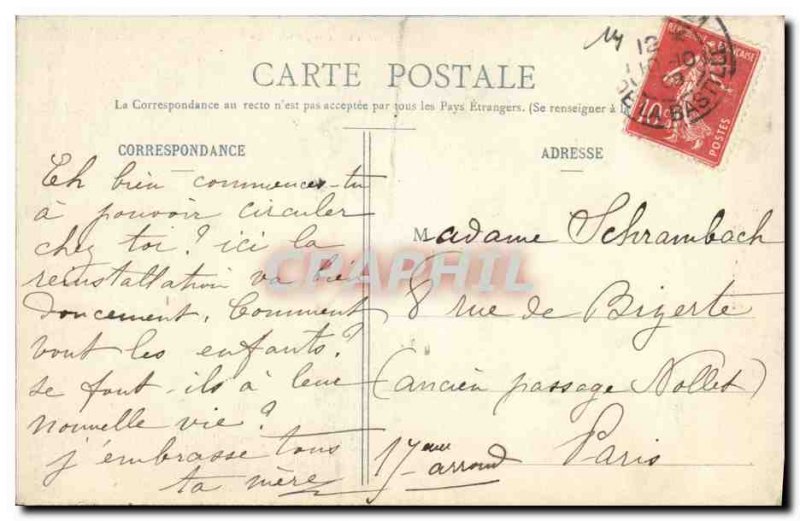 CARTE POSTALE
La Correspondance au recto n'est pas acceptée par tous les Pays Étrangers. (Se renseigner à la
CORRESPONDANCE
Eh bien commences-tu
à pouvoir circuler
chez toi? ici la
reinstallation va bien
doucement. Comment
vont les enfants?
se font-ils à leur
nouvelle vie?
j'embrasse tous
ta mère
ADRESSE
Madame Schrambach
8 rue de Bizerte
(ancien passage Nollet)
17eme arrond Paris
14
12
10
DE LA BASTILLE
10c
POSTES
CPAPHIL